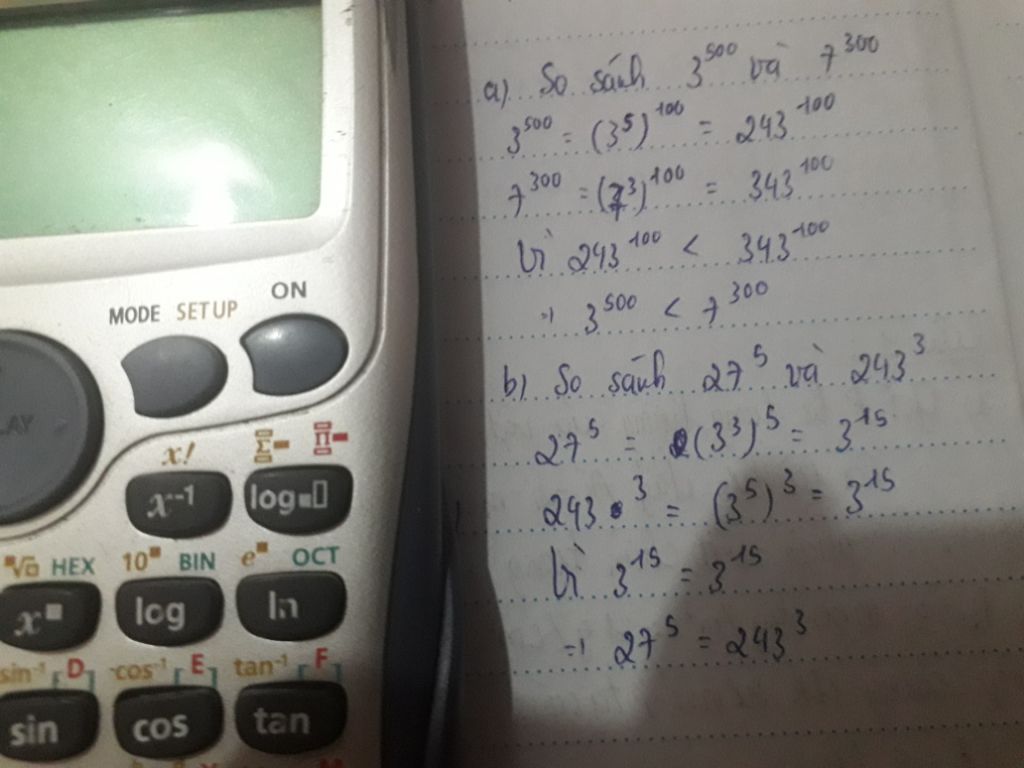 a) So sánh 3^500 và 7^300
3^500 = (3^5)^100 = 243^100
7^300 = (7^3)^100 = 343^100
Vì 243^100 < 343^100
=> 3^500 < 7^300
b) So sánh 27^5 và 243^3
27^5 = (3^3)^5 = 3^15
243^3 = (3^5)^3 = 3^15
Vì 3^15 = 3^15
=> 27^5 = 243^3
MODE SETUP ON
LAY
x! Σ Π
x^-1 log
√ HEX 10 BIN e OCT
x log ln
sin^-1 D cos^-1 E tan^-1 F
sin cos tan